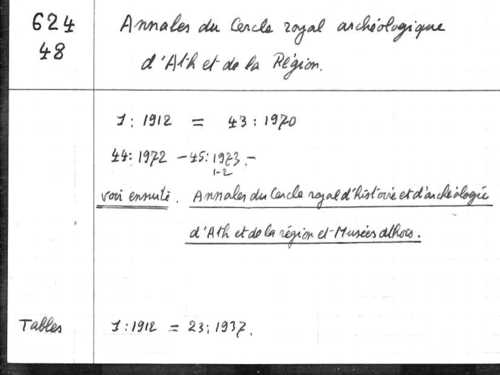 624
48
Annales du Cercle royal archéologique
d'Ath et de la Région.
1: 1912 = 43: 1970
44: 1972 - 45: 1973. -
1-2
voir ensuite. Annales du Cercle royal d'histoire et d'archéologie
d'Ath et de la région et Musées athois.
Tables 1: 1912 = 23: 1937.